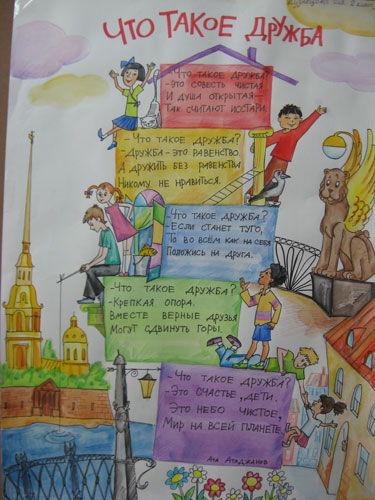 ЧТО ТАКОЕ ДРУЖБА
- ЧТО ТАКОЕ ДРУЖБА?
- ЭТО СОВЕСТЬ ЧИСТАЯ
И ДУША ОТКРЫТАЯ -
ТАК СЧИТАЮТ ИССТАРИ.
- ЧТО ТАКОЕ ДРУЖБА?
ДРУЖБА - ЭТО РАВЕНСТВО.
А ДРУЖИТЬ БЕЗ РАВЕНСТВА
НИКОМУ НЕ НРАВИТЬСЯ.
- ЧТО ТАКОЕ ДРУЖБА?
- ЕСЛИ СТАНЕТ ТУГО,
ТО ВО ВСЁМ КАК НА СЕБЯ
ПОЛОЖИСЬ НА ДРУГА.
- ЧТО ТАКОЕ ДРУЖБА?
- КРЕПКАЯ ОПОРА.
ВМЕСТЕ ВЕРНЫЕ ДРУЗЬЯ
МОГУТ СДВИНУТЬ ГОРЫ.
- ЧТО ТАКОЕ ДРУЖБА?
- ЭТО СЧАСТЬЕ, ДЕТИ.
ЭТО НЕБО ЧИСТОЕ,
МИР НА ВСЕЙ ПЛАНЕТЕ.